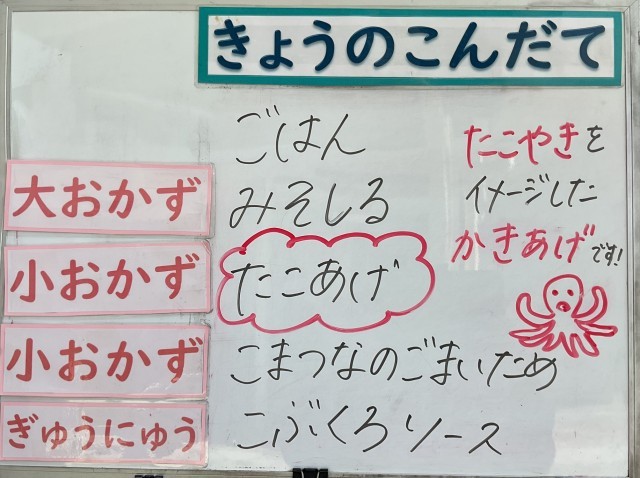 きょうのこんだて
ごはん
大おかず
みそしる
小おかず
たこあげ
小おかず
こまつなのごまいため
ぎゅうにゅう
こぶくろソース
たこやきを
イメージした
かきあげです!